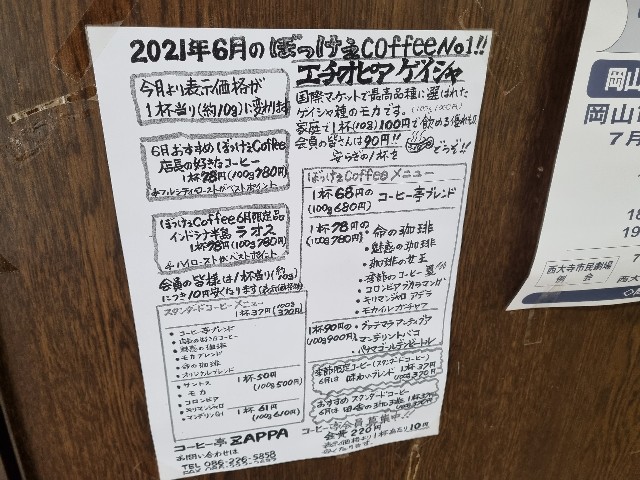 2021年6月の ぼっけゑcoffee No1!!
エチオピア ゲイシャ
今月より表示価格が
1杯当り(約10g)に変ります
国際マーケットで最高品種に選ばれた
ゲイシャ種のモカです。(100g1000円)
家庭で1杯(10g)100円で飲める優れもの
会員の皆さんは90円!!
安らぎの1杯を どうぞ!!
6月おすすめ ぼっけゑCoffee
店長の好きなコーヒー
1杯78円(100g780円)
フルシティローストがベストポイント
ぼっけゑCoffee 6月限定品
インドシナ半島 ラオス
1杯78円(100g780円)
ハイローストがベストポイント
会員の皆様は1杯当り(約10g)
につき10円安くなります(表示価格より)
スタンダードコーヒーメニュー
1杯37円(100g 370円)
・コーヒー亭ブレンド
・店長の好きなコーヒー
・魅惑の珈琲
・モカブレンド
・命の珈琲
・オリジナルブレンド
・サントス
・モカ
・コロンビア
1杯50円
(100g500円)
・キリマンジャロ
・マンデリンG1
1杯61円
(100g610円)
コーヒー亭 ZAPPA
お問い合わせは
TEL 086-226-5858
ぼっけゑCoffee メニュー
1杯68円の
(100g680円)
コーヒー亭ブレンド
1杯78円の
(100g780円)
・命の珈琲
・魅惑の珈琲
・珈琲の女王
・季節のコーヒー 夏
・コロンビアスカラマンガ
・キリマンジャロ アデラ
・モカイルガチャフ
1杯90円の
(100g900円)
・グァテマラアンティグア
・マンデリントバコ
・パナマゴールデンビートル
季節限定コーヒー(スタンダードコーヒー)
6月は 味わいブレンド 1杯37円
(100g370円)
おすすめ スタンダードコーヒー
6月は 田舎の珈琲 1杯37円
(100g370円)
コーヒー亭会員 募集中!!
会費220円
表示価格より1杯あたり10円
安くなります。
岡山
岡山市
7月
18
19
西大寺市民劇場
例 会
西大